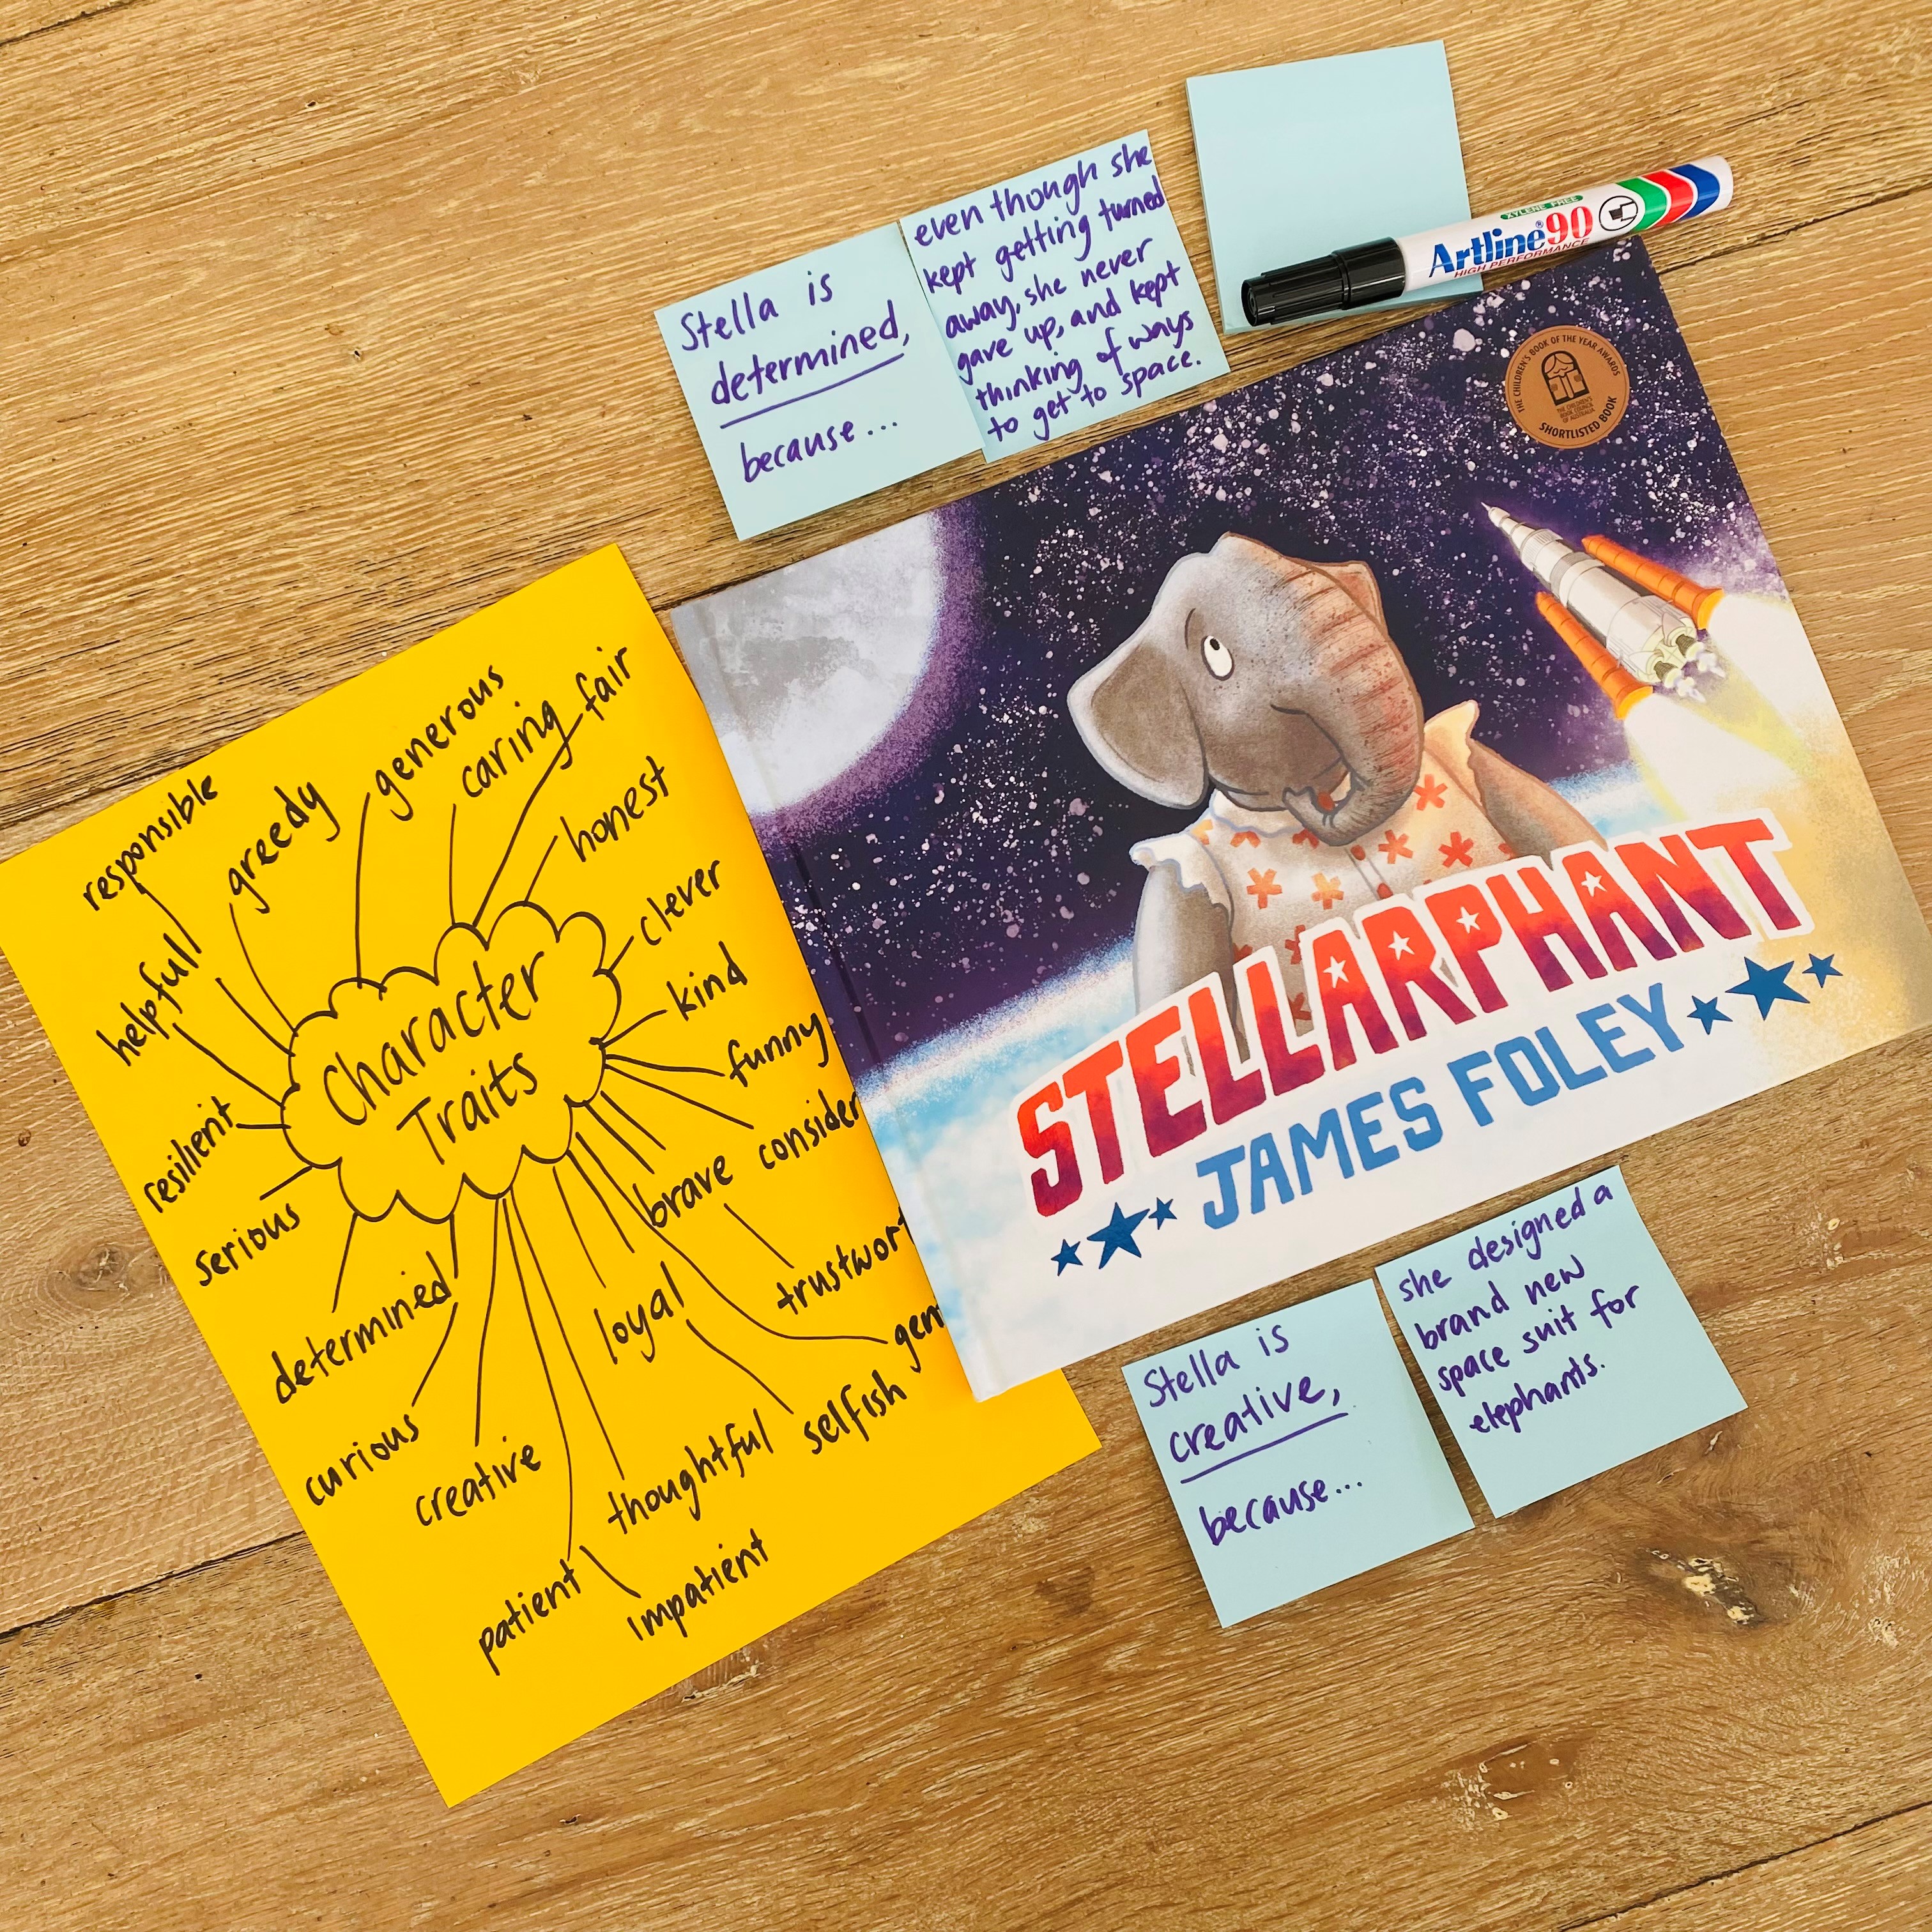 Stella is
determined,
because...
even though she
kept getting turned
away, she never
gave up, and kept
thinking of ways
to get to space.
XYLENE FREE
Artline 90
HIGH PERFORMANCE
THE CHILDREN'S BOOK OF THE YEAR AWARDS
THE CHILDREN'S
BOOK COUNCIL
OF AUSTRALIA
SHORTLISTED BOOK
STELLARPHANT
JAMES FOLEY
Character
Traits
responsible
greedy
generous
caring
fair
honest
clever
kind
funny
consider
brave
trustwor
gen
loyal
selfish
thoughtful
impatient
patient
creative
curious
determined
serious
resilient
helpfull
Stella is
creative,
because...
she designed a
brand new
space suit for
elephants.